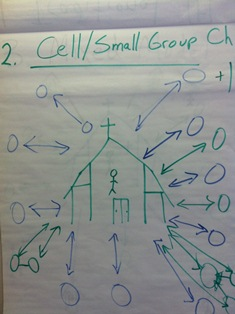 2. Cell/Small Group Ch
+1